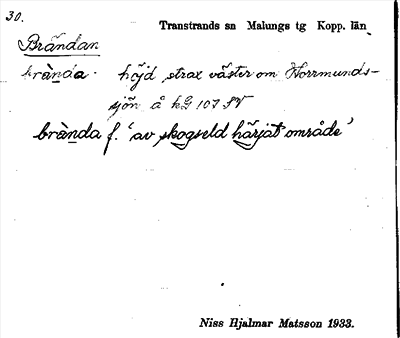 30.
Transtrands sn Malungs tg Kopp. län
Brändan
brànda. höjd strax väster om Horrmunds-
sjön å kG 107 SV
brànda f. 'av skogseld härjat område'
Niss Hjalmar Matsson 1933.